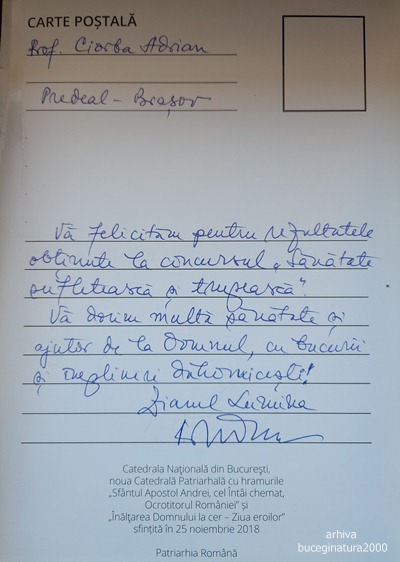 CARTE POȘTALĂ
Prof. Ciorba Adrian
Predeal - Brașov
Vă felicităm pentru rezultatele
obținute la concursul „Sănătate
sufletească și trupească”.
Vă dorim multă sănătate și
ajutor de la Domnul, cu bucurii
și împliniri duhovnicești!
Ziarul Lumina
Catedrala Națională din București,
noua Catedrală Patriarhală cu hramurile
„Sfântul Apostol Andrei, cel Întâi chemat,
Ocrotitorul României” și
„Înălțarea Domnului la cer – Ziua eroilor”
sfințită în 25 noiembrie 2018
Patriarhia Română
arhiva
buceginatura2000